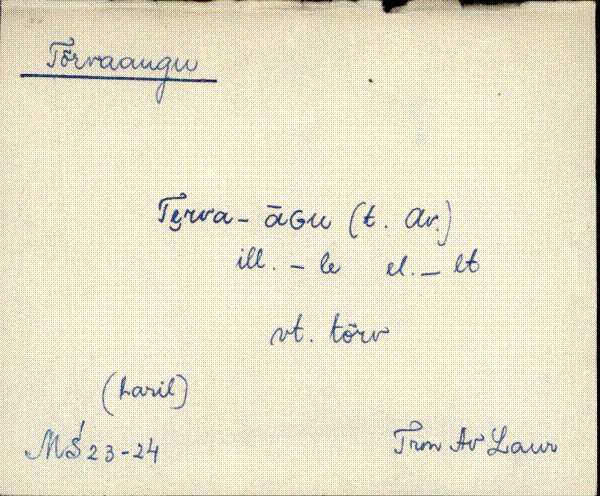 Tõrvaaugu
Tę̮rva-āGu (t. Av.)
ill. -le el. -lt
vt. tõrv
(Laril)
MŚ 23-24
Trm Av Laur